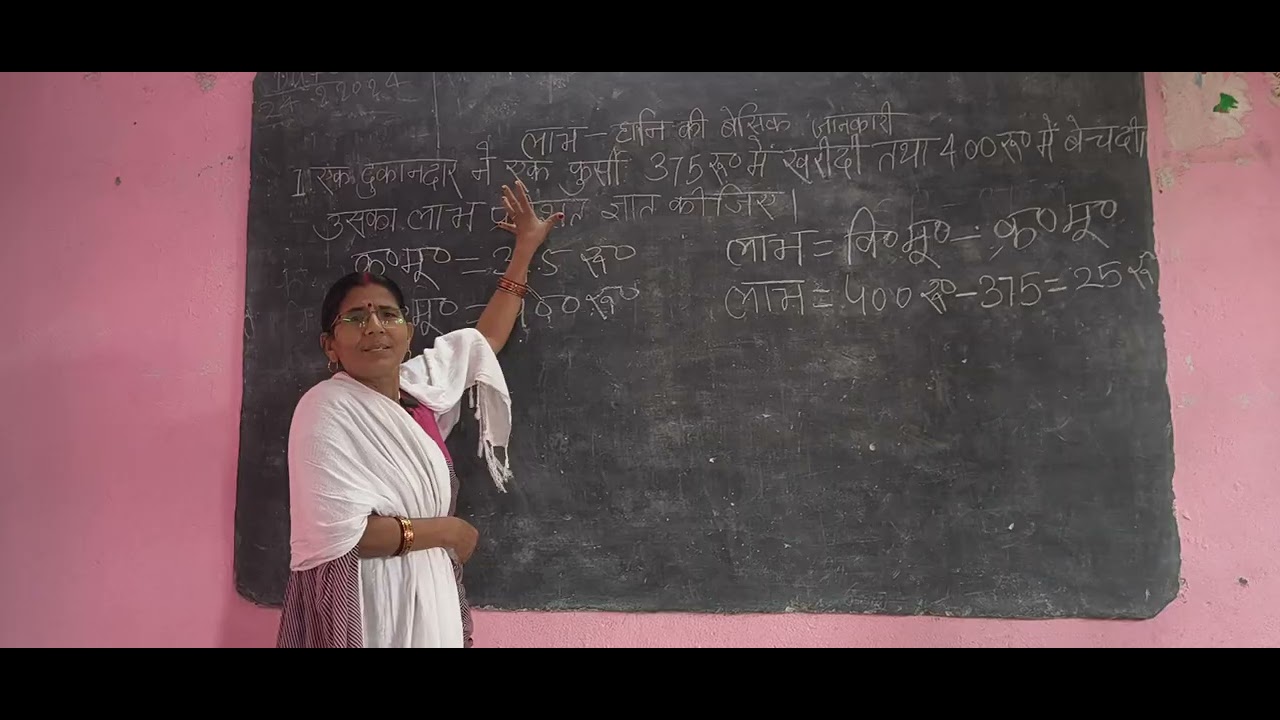 24 2 2024
लाभ - हानि की बेसिक जानकारी
I एक दुकानदार ने एक कुर्सी 375 रू० में खरीदी तथा 400 रू० में बेच दी।
उसका लाभ ज्ञात कीजिए।
क्र० मू० = 5 रू०
मू० = 400 रू०
लाभ = वि० मू० - क्र० मू०
लाभ = 400 रू० - 375 = 25 रू